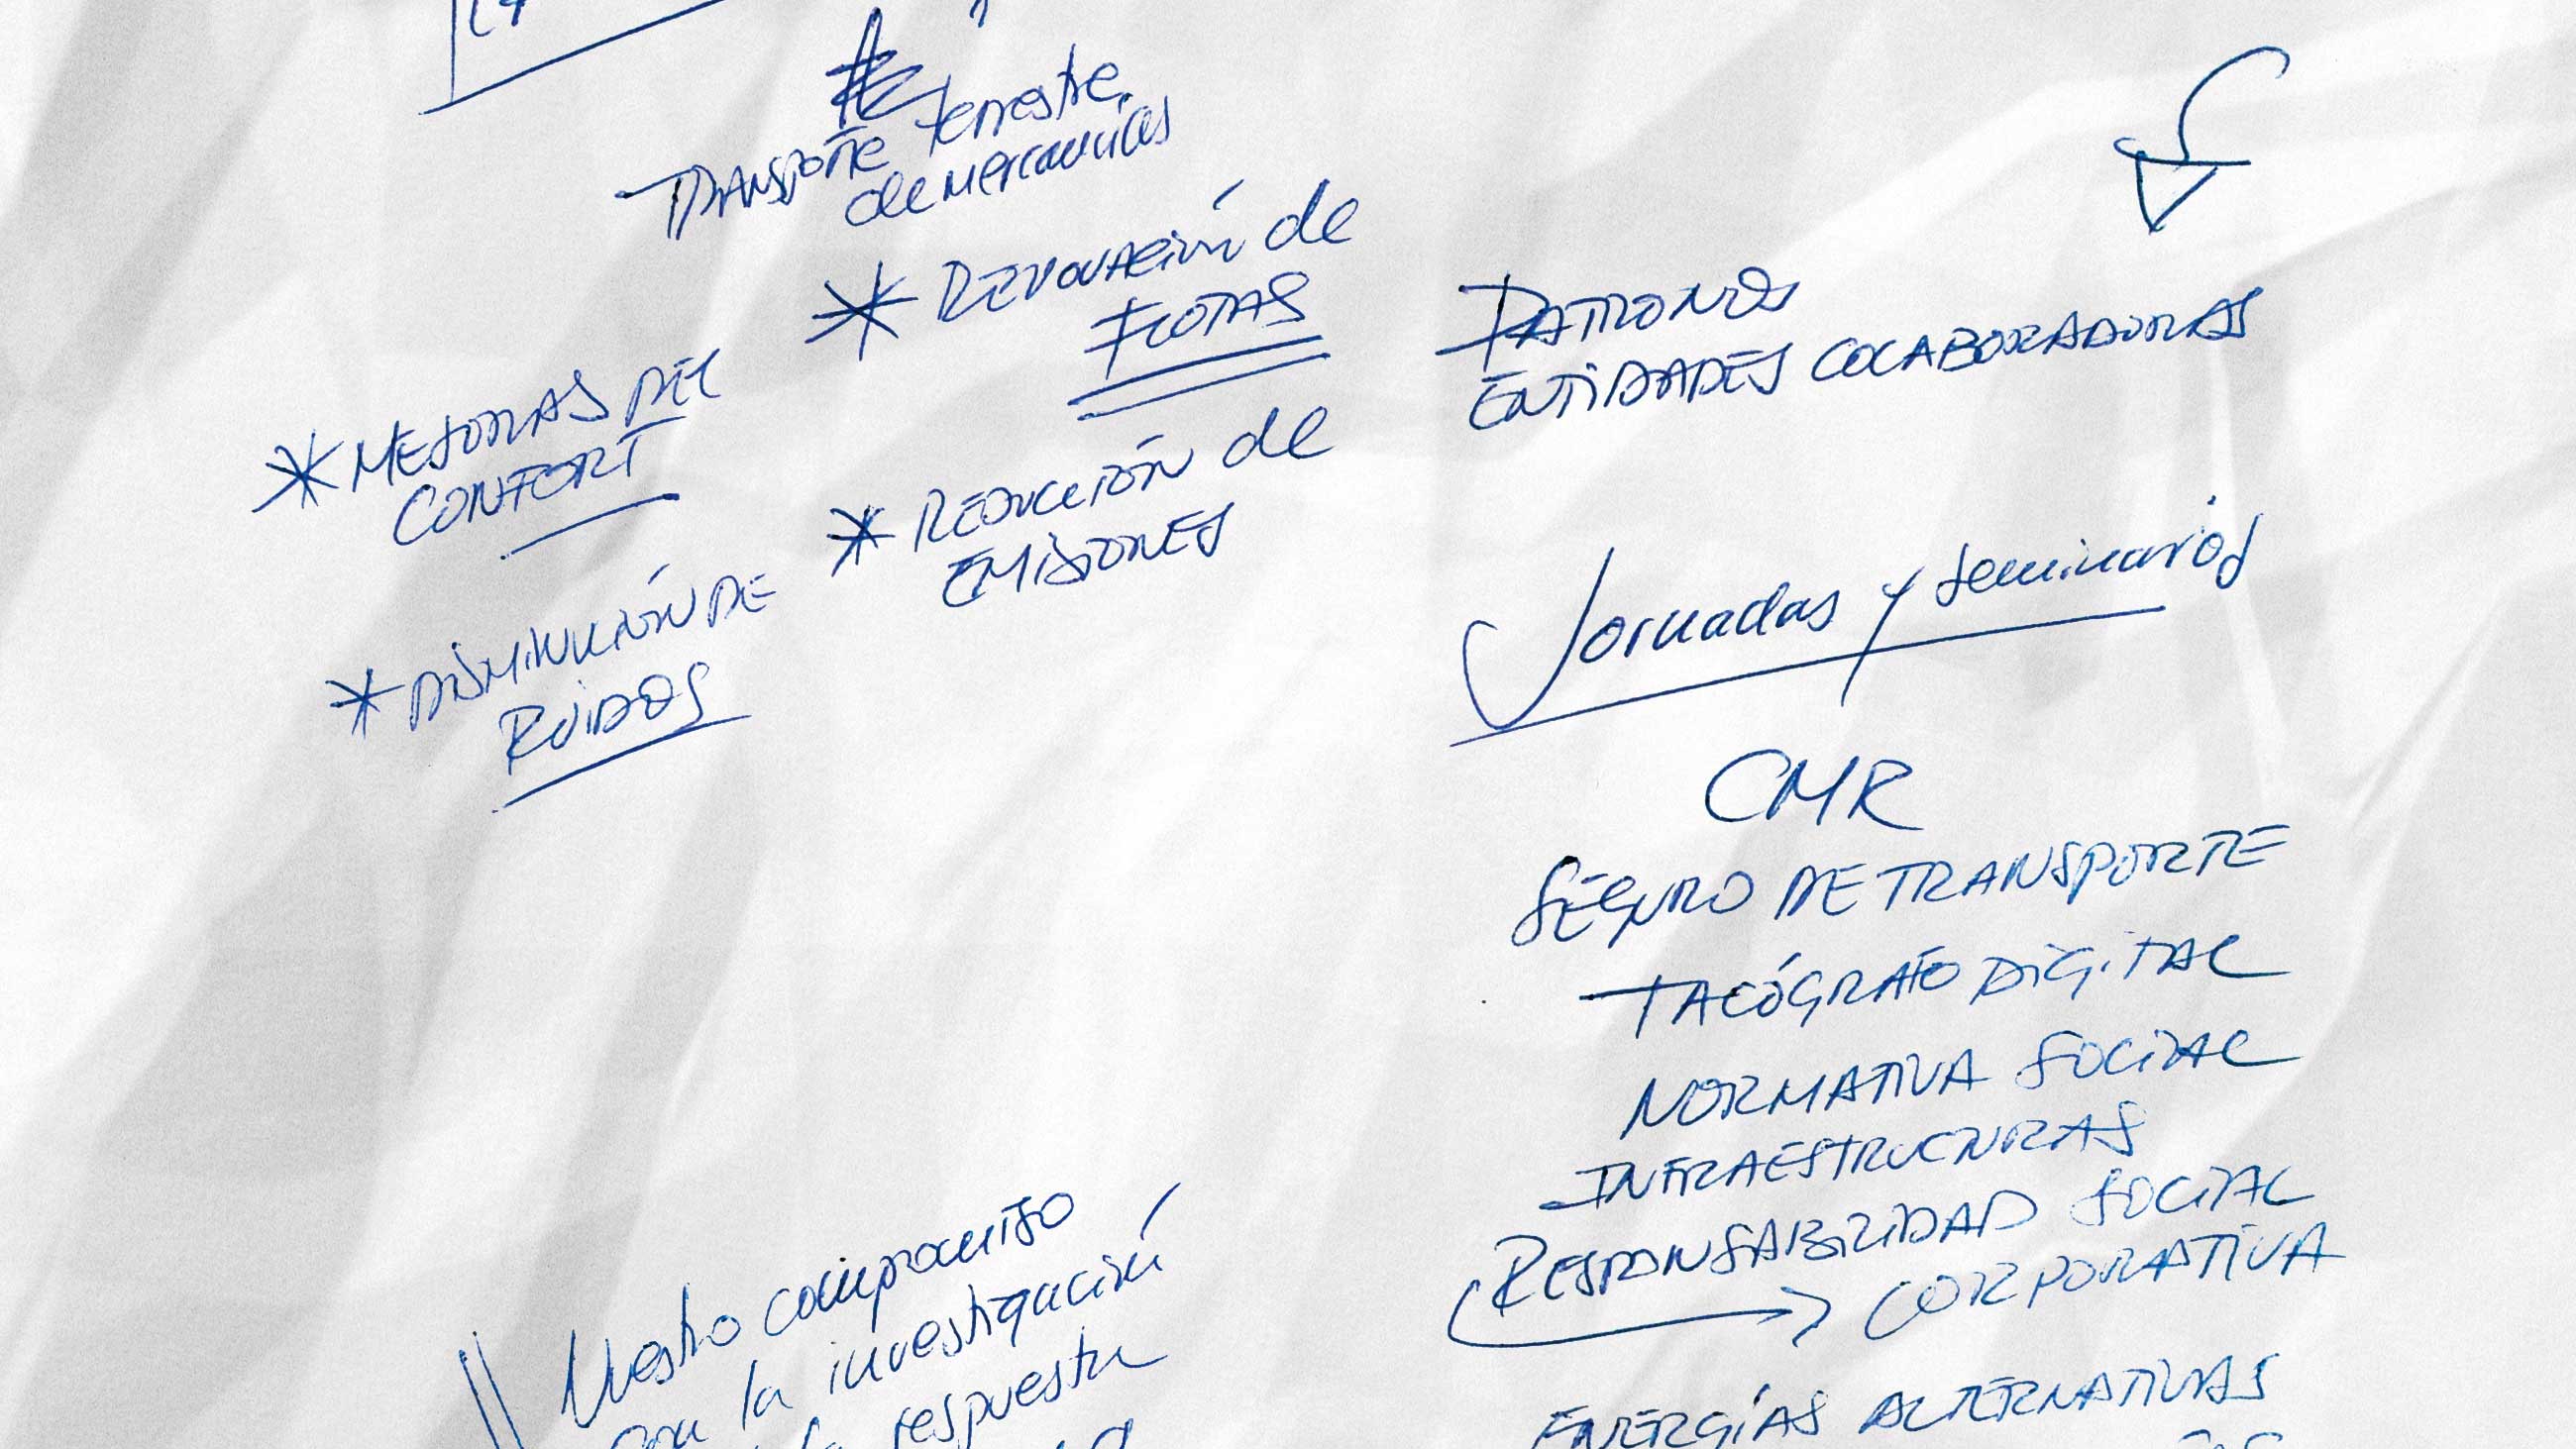 Transporte terrestre
de mercancías
* Renovación de
FLOTAS
* MEJORAS DEL
CONFORT
* REDUCCIÓN de
EMISIONES
* DISMINUCIÓN DE
RUIDOS
PATRONOS
ENTIDADES COLABORADORAS
Jornadas y seminarios
CMR
SEGURO DE TRANSPORTE
TACÓGRAFO DIGITAL
NORMATIVA SOCIAL
INFRAESTRUCTURAS
RESPONSABILIDAD SOCIAL
CORPORATIVA
ENERGÍAS ALTERNATIVAS
Nuestro compromiso
con la investigación
la respuesta